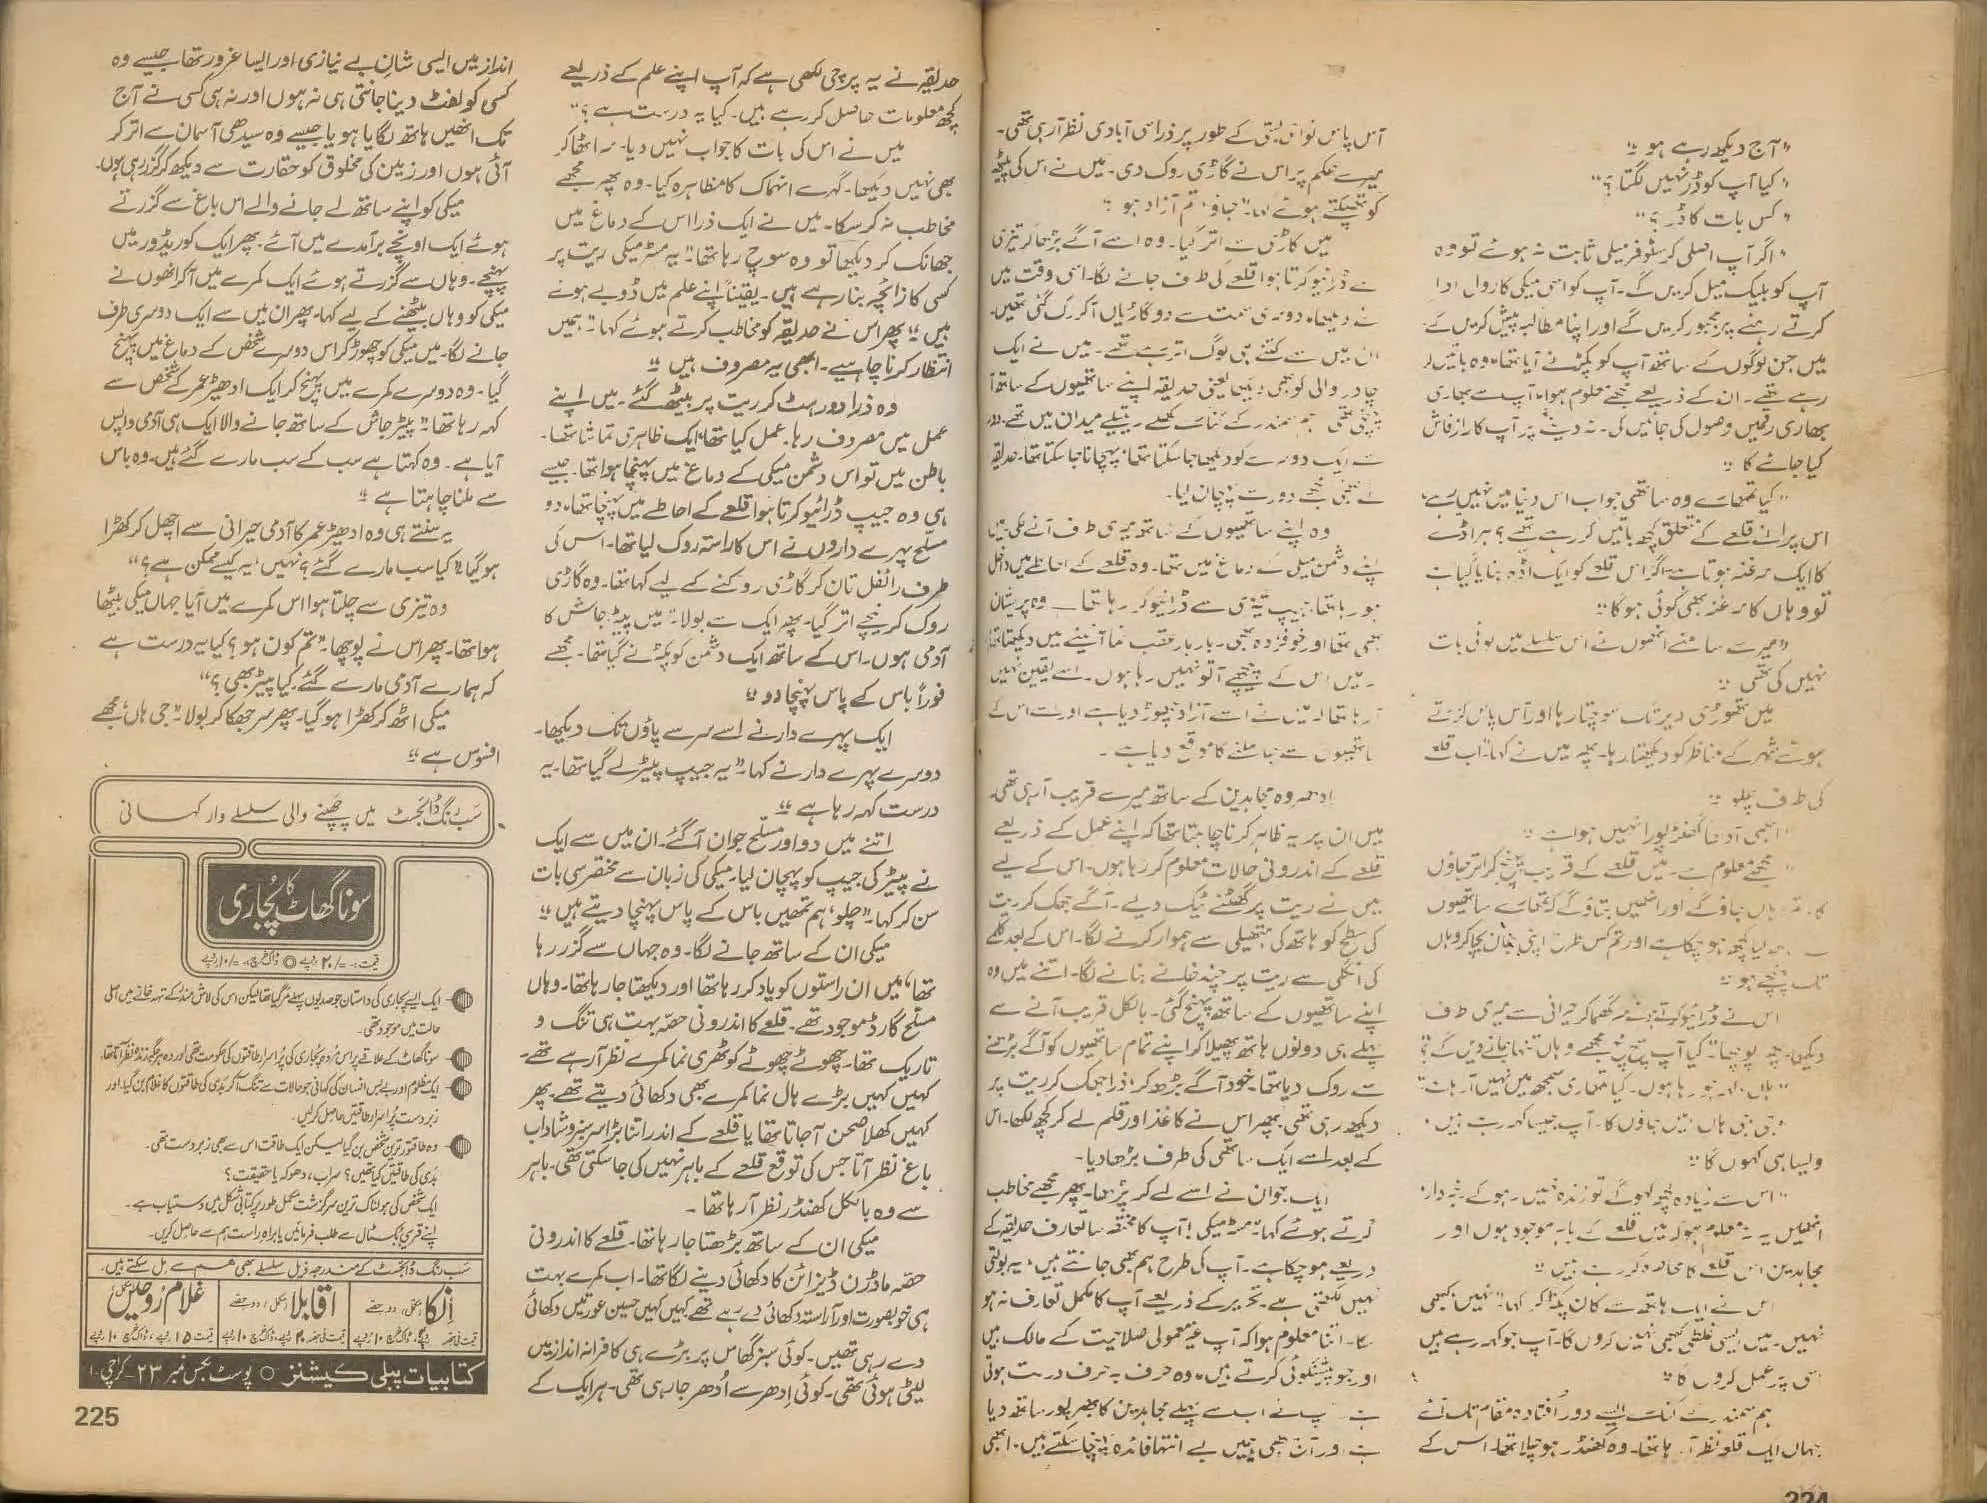 "آج دیکھ رہے ہو"
"کیا آپ کو ڈر نہیں لگتا؟"
"کس بات کا ڈر؟"
"اگر آپ اصلی کرسٹوفر میکی ثابت نہ ہوئے تو وہ
آپ کو بلیک میل کریں گے۔ آپ کو اسی میکی کا رول ادا
کرتے رہنے پر مجبور کریں گے اور اپنا مطالبہ پیش کریں گے۔
میں جن لوگوں کے ساتھ آپ کو پکڑنے آیا تھا، وہ باتیں کر
رہے تھے۔ ان کے ذریعے مجھے معلوم ہوا، آپ سے بھاری
بھاری رقمیں وصول کی جائیں گی۔ نہ دینے پر آپ کا راز فاش
کیا جائے گا"
"کیا تمھارے وہ ساتھی جو اب اس دنیا میں نہیں رہے،
اس پرانے قلعے کے متعلق کچھ باتیں کر رہے تھے؟ ہر اڈے
کا ایک سرغنہ ہوتا ہے اگر اس قلعے کو ایک اڈہ بنایا گیا ہے
تو وہاں کا سرغنہ بھی کوئی ہوگا"
"میرے سامنے انھوں نے اس سلسلے میں کوئی بات
نہیں کی تھی"
میں تھوڑی دیر تک سوچتا رہا اور آس پاس گزرتے
ہوئے شہر کے مناظر کو دیکھتا رہا۔ پھر میں نے کہا "اب قلعے
کی طرف چلو"
"ابھی آدھا گھنٹہ پورا نہیں ہوا ہے"
"مجھے معلوم ہے۔ میں قلعے کے قریب پہنچ کر اتر جاؤں
گا۔ تم وہاں جاؤ گے اور انھیں بتاؤ گے کہ تمھارے ساتھیوں
کیا کچھ ہو چکا ہے اور تم کس طرح اپنی جان بچا کر وہاں
تک پہنچے ہو"
اس نے ڈرائیو کرتے ہوئے سر گھما کر حیرانی سے میری طرف
دیکھا۔ پھر پوچھا "کیا آپ سچ مچ مجھے وہاں تنہا جانے دیں گے؟"
"ہاں کہہ جو رہا ہوں۔ کیا تمھاری سمجھ میں نہیں آ رہا ہے"
"جی جی ہاں، میں جاؤں گا۔ آپ جیسا کہہ رہے ہیں،
ویسا ہی کہوں گا"
"اس سے زیادہ کچھ کہو گے تو زندہ نہیں رہو گے۔ خبردار،
انھیں یہ نہ معلوم ہو کہ میں قلعے کے باہر موجود ہوں اور
مجاہدین اس قلعے کا محاصرہ کر رہے ہیں"
اس نے ایک ہاتھ سے کان پکڑ کر کہا "نہیں، کبھی
نہیں۔ میں ایسی غلطی کبھی نہیں کروں گا۔ آپ جو کہہ رہے ہیں
اسی پر عمل کروں گا"
ہم سمندر کے کنارے ایسے دور اُفتادہ مقام تک آئے
جہاں ایک قلعہ نظر آ رہا تھا۔ وہ کھنڈر ہو چلا تھا۔ اس کے
224
آس پاس نواحی بستی کے طور پر ذرا سی آبادی نظر آ رہی تھی۔
میرے حکم پر اس نے گاڑی روک دی۔ میں نے اس کی پیٹھ
کو تھپکتے ہوئے کہا "جاؤ، تم آزاد ہو"
میں گاڑی سے اتر گیا۔ وہ اسے آگے بڑھا کر تیزی
سے ڈرائیو کرتا ہوا قلعے کی طرف جانے لگا۔ اسی وقت میں
نے دیکھا، دوسری سمت سے دو گاڑیاں آ کر رک گئی تھیں۔
ان میں سے کتنے ہی لوگ اتر رہے تھے۔ میں نے ایک
چادر والی کو بھی دیکھا یعنی حدیقہ اپنے ساتھیوں کے ساتھ آ
پہنچی تھی۔ ہم سمندر کے کنارے کھلے ریتیلے میدان میں تھے۔ دور
سے ایک دوسرے کو دیکھا جا سکتا تھا، پہچانا جا سکتا تھا۔ حدیقہ
نے بھی مجھے دور سے پہچان لیا۔
وہ اپنے ساتھیوں کے ساتھ میری طرف آنے لگی۔ میں
اپنے دشمن میکی کے دماغ میں تھا۔ وہ قلعے کے احاطے میں داخل
ہو رہا تھا۔ جیپ تیزی سے ڈرائیو کر رہا تھا۔ وہ پریشان
بھی تھا اور خوفزدہ بھی۔ بار بار عقب نما آئینے میں دیکھتا تھا
۔ میں اس کے پیچھے آ تو نہیں رہا ہوں۔ اسے یقین نہیں
آ رہا تھا کہ میں نے اسے آزاد چھوڑ دیا ہے اور اسے اس کے
ساتھیوں سے جا ملنے کا موقع دیا ہے۔
ادھر وہ مجاہدین کے ساتھ میرے قریب آ رہی تھی۔
میں ان پر یہ ظاہر کرنا چاہتا تھا کہ اپنے عمل کے ذریعے
قلعے کے اندرونی حالات معلوم کر رہا ہوں۔ اس کے لیے
میں نے ریت پر گھٹنے ٹیک دیے۔ آگے جھک کر ریت
کی سطح کو ہاتھ کی ہتھیلی سے ہموار کرنے لگا۔ اس کے بعد کلمے
کی انگلی سے ریت پر چند خانے بنانے لگا۔ اتنے میں وہ
اپنے ساتھیوں کے ساتھ پہنچ گئی۔ بالکل قریب آنے سے
پہلے ہی دونوں ہاتھ پھیلا کر اپنے تمام ساتھیوں کو آگے بڑھنے
سے روک دیا تھا۔ خود آگے بڑھ کر، ذرا جھک کر ریت پر
دیکھ رہی تھی پھر اس نے کاغذ اور قلم لے کر کچھ لکھا۔ اس
کے بعد اسے ایک ساتھی کی طرف بڑھا دیا۔
ایک جوان نے اسے لے کر پڑھا۔ پھر مجھے مخاطب
کرتے ہوئے کہا "مسٹر میکی! آپ کا مختصر سا تعارف حدیقہ کے
ذریعے ہو چکا ہے۔ آپ کی طرح ہم بھی جانتے ہیں، یہ بولتی
نہیں لکھتی ہے۔ تحریر کے ذریعے آپ کا مکمل تعارف نہ ہو
سکا۔ اتنا معلوم ہوا کہ آپ غیر معمولی صلاحیت کے مالک ہیں
اور جو پیشگوئی کرتے ہیں، وہ حرف بہ حرف درست ہوتی
ہے۔ آپ نے اب سے پہلے مجاہدین کا بھرپور ساتھ دیا
ہے اور آئندہ بھی ہمیں بے انتہا فائدہ پہنچا سکتے ہیں۔ ابھی
حدیقہ نے یہ پرچی لکھی ہے کہ آپ اپنے علم کے ذریعے
کچھ معلومات حاصل کر رہے ہیں۔ کیا یہ درست ہے؟"
میں نے اس کی بات کا جواب نہیں دیا۔ سر اٹھا کر
بھی نہیں دیکھا۔ گہرے انہماک کا مظاہرہ کیا۔ وہ پھر مجھے
مخاطب نہ کر سکا۔ میں نے ایک ذرا اس کے دماغ میں
جھانک کر دیکھا تو وہ سوچ رہا تھا "یہ مسٹر میکی ریت پر
کسی کا زائچہ بنا رہے ہیں۔ یقیناً اپنے علم میں ڈوبے ہوئے
ہیں" پھر اس نے حدیقہ کو مخاطب کرتے ہوئے کہا "ہمیں
انتظار کرنا چاہیے۔ ابھی یہ مصروف ہیں"
وہ ذرا دور ہٹ کر ریت پر بیٹھ گئے۔ میں اپنے
عمل میں مصروف رہا۔ عمل کیا تھا، ایک ظاہری تماشا تھا۔
باطن میں تو اس دشمن میکی کے دماغ میں پہنچا ہوا تھا۔ جیسے
ہی وہ جیپ ڈرائیو کرتا ہوا قلعے کے احاطے میں پہنچا تھا، دو
مسلّح پہرے داروں نے اس کا راستہ روک لیا تھا۔ اس کی
طرف رائفل تان کر گاڑی روکنے کے لیے کہا تھا۔ وہ گاڑی
روک کر نیچے اتر گیا۔ پھر ایک سے بولا "میں پیٹر جاش کا
آدمی ہوں۔ اس کے ساتھ ایک دشمن کو پکڑنے گیا تھا۔ مجھے
فوراً باس کے پاس پہنچا دو"
ایک پہرے دار نے اسے سر سے پاؤں تک دیکھا۔
دوسرے پہرے دار نے کہا "یہ جیپ پیٹر لے گیا تھا۔ یہ
درست کہہ رہا ہے"
اتنے میں دو اور مسلّح جوان آ گئے۔ ان میں سے ایک
نے پیٹر کی جیپ کو پہچان لیا۔ میکی کی زبان سے مختصر سی بات
سن کر کہا "چلو، ہم تمھیں باس کے پاس پہنچا دیتے ہیں"
میکی ان کے ساتھ جانے لگا۔ وہ جہاں سے گزر رہا
تھا، میں ان راستوں کو یاد کر رہا تھا اور دیکھتا جا رہا تھا۔ وہاں
مسلّح گارڈ موجود تھے۔ قلعے کا اندرونی حصّہ بہت ہی تنگ و
تاریک تھا۔ چھوٹے چھوٹے کوٹھری نما کمرے نظر آ رہے تھے۔
کہیں کہیں بڑے ہال نما کمرے بھی دکھائی دیتے تھے۔ پھر
کہیں کھلا صحن آ جاتا تھا یا قلعے کے اندر اتنا بڑا سرسبز و شاداب
باغ نظر آتا جس کی توقع قلعے کے باہر نہیں کی جا سکتی تھی۔ باہر
سے وہ بالکل کھنڈر نظر آ رہا تھا۔
میکی ان کے ساتھ بڑھتا جا رہا تھا۔ قلعے کا اندرونی
حصّہ ماڈرن ڈیزائن کا دکھائی دینے لگا تھا۔ اب کمرے بہت
ہی خوبصورت اور آراستہ دکھائی دے رہے تھے کہیں کہیں حسین عورتیں دکھائی
دے رہی تھیں۔ کوئی سبز گھاس پر بڑے ہی کافرانہ انداز میں
لیٹی ہوئی تھی۔ کوئی اِدھر سے اُدھر جا رہی تھی۔ ہر ایک کے
انداز میں ایسی شانِ بے نیازی اور ایسا غرور تھا جیسے وہ
کسی کو لفٹ دینا جانتی ہی نہ ہوں اور نہ ہی کسی نے آج
تک انھیں ہاتھ لگایا ہو یا جیسے وہ سیدھی آسمان سے اتر کر
آئی ہوں اور زمین کی مخلوق کو حقارت سے دیکھ کر گزر رہی ہوں۔
میکی کو اپنے ساتھ لے جانے والے اس باغ سے گزرتے
ہوئے ایک اونچے برآمدے میں آئے۔ پھر ایک کوریڈور میں
پہنچے۔ وہاں سے گزرتے ہوئے ایک کمرے میں آ کر انھوں نے
میکی کو وہاں بیٹھنے کے لیے کہا۔ پھر ان میں سے ایک دوسری طرف
جانے لگا۔ میں میکی کو چھوڑ کر اس دوسرے شخص کے دماغ میں پہنچ
گیا۔ وہ دوسرے کمرے میں پہنچ کر ایک ادھیڑ عمر کے شخص سے
کہہ رہا تھا "پیٹر جاش کے ساتھ جانے والا ایک ہی آدمی واپس
آیا ہے۔ وہ کہتا ہے سب کے سب مارے گئے ہیں۔ وہ باس
سے ملنا چاہتا ہے"
یہ سنتے ہی وہ ادھیڑ عمر کا آدمی حیرانی سے اچھل کر کھڑا
ہو گیا "کیا سب مارے گئے؟ نہیں، یہ کیسے ممکن ہے؟"
وہ تیزی سے چلتا ہوا اس کمرے میں آیا جہاں میکی بیٹھا
ہوا تھا۔ پھر اس نے پوچھا "تم کون ہو؟ کیا یہ درست ہے
کہ ہمارے آدمی مارے گئے، کیا پیٹر بھی؟"
میکی اٹھ کر کھڑا ہو گیا۔ پھر سر جھکا کر بولا "جی ہاں، مجھے
افسوس ہے"
سَب رنگ ڈائجسٹ میں چھپنے والی سلسلے وار کہانی
سونا گھاٹ کا پُجاری
قیمت ۲۰/= روپے ڈاک خرچ ۱۰/= روپے
ایک ایسے پجاری کی داستان جو صدیوں پہلے مر گیا تھا لیکن اس کی لاش مندر کے تہہ خانے میں اصلی
حالت میں موجود تھی۔
سونا گھاٹ کے علاقے پر اس مُردہ پجاری کی پُراسرار طاقتوں کی حکومت تھی اور وہ ہر جگہ زندہ نظر آتا تھا۔
ایک مظلوم اور بے بس انسان کی کہانی جو حالات سے تنگ آ کر بدی کی طاقتوں کا غلام بن گیا، اور
زبردست پُراسرار طاقتیں حاصل کر لیں۔
وہ طاقتور ترین شخص بن گیا لیکن ایک طاقت اس سے بھی زبردست تھی۔
بدی کی طاقتیں کیا تھیں؟ سراب، دھوکہ یا حقیقت؟
ایک شخص کی ہولناک ترین سرگزشت مکمل طور پر کتابی شکل میں دستیاب ہے۔
اپنے قریبی بکسٹال سے طلب فرمائیں یا براہ راست ہم سے حاصل کریں۔
سَب رنگ ڈائجسٹ کے مندرجہ ذیل سلسلے بھی ہم سے مِل سکتے ہیں۔
اِنکا (مکمل) دو حصّے
اقابلا (مکمل) دو حصّے
غلام رُوحیں (مکمل)
قیمت ۱۵ روپے، ڈاک خرچ ۱۰ روپے
کتابیات پبلی کیشنز ○ پوسٹ بکس نمبر ۲۳۔ کراچی ۱
225